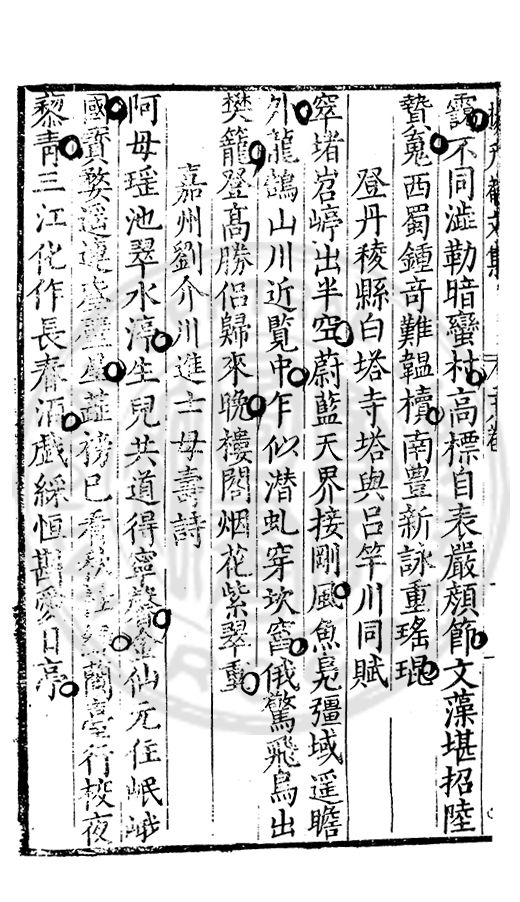 靄不同澁勒暗蠻村高標自表嚴顔節文藻堪招陸
贄䰟西蜀鍾奇難韞櫝南豊新詠重瑤琨
登丹稜縣白塔寺塔與呂竿川同賦
窣堵岧嵉出半空蔚藍天界接剛風魚鳬彊域遥瞻
外龍鵠山川近覧中乍似潜虬穿坎窞俄驚飛鳥出
樊籠登髙勝侣歸來晚樓閣烟花紫翠重
嘉州劉介川進士母壽詩
阿母瑶池翠水渟生兒共道得寧馨金仙元住岷峨
國寳婺遥連奎壁星蘂榜已看蘭臺行校夜
黎青三江化作長春酒戯綵恒斟愛日亭